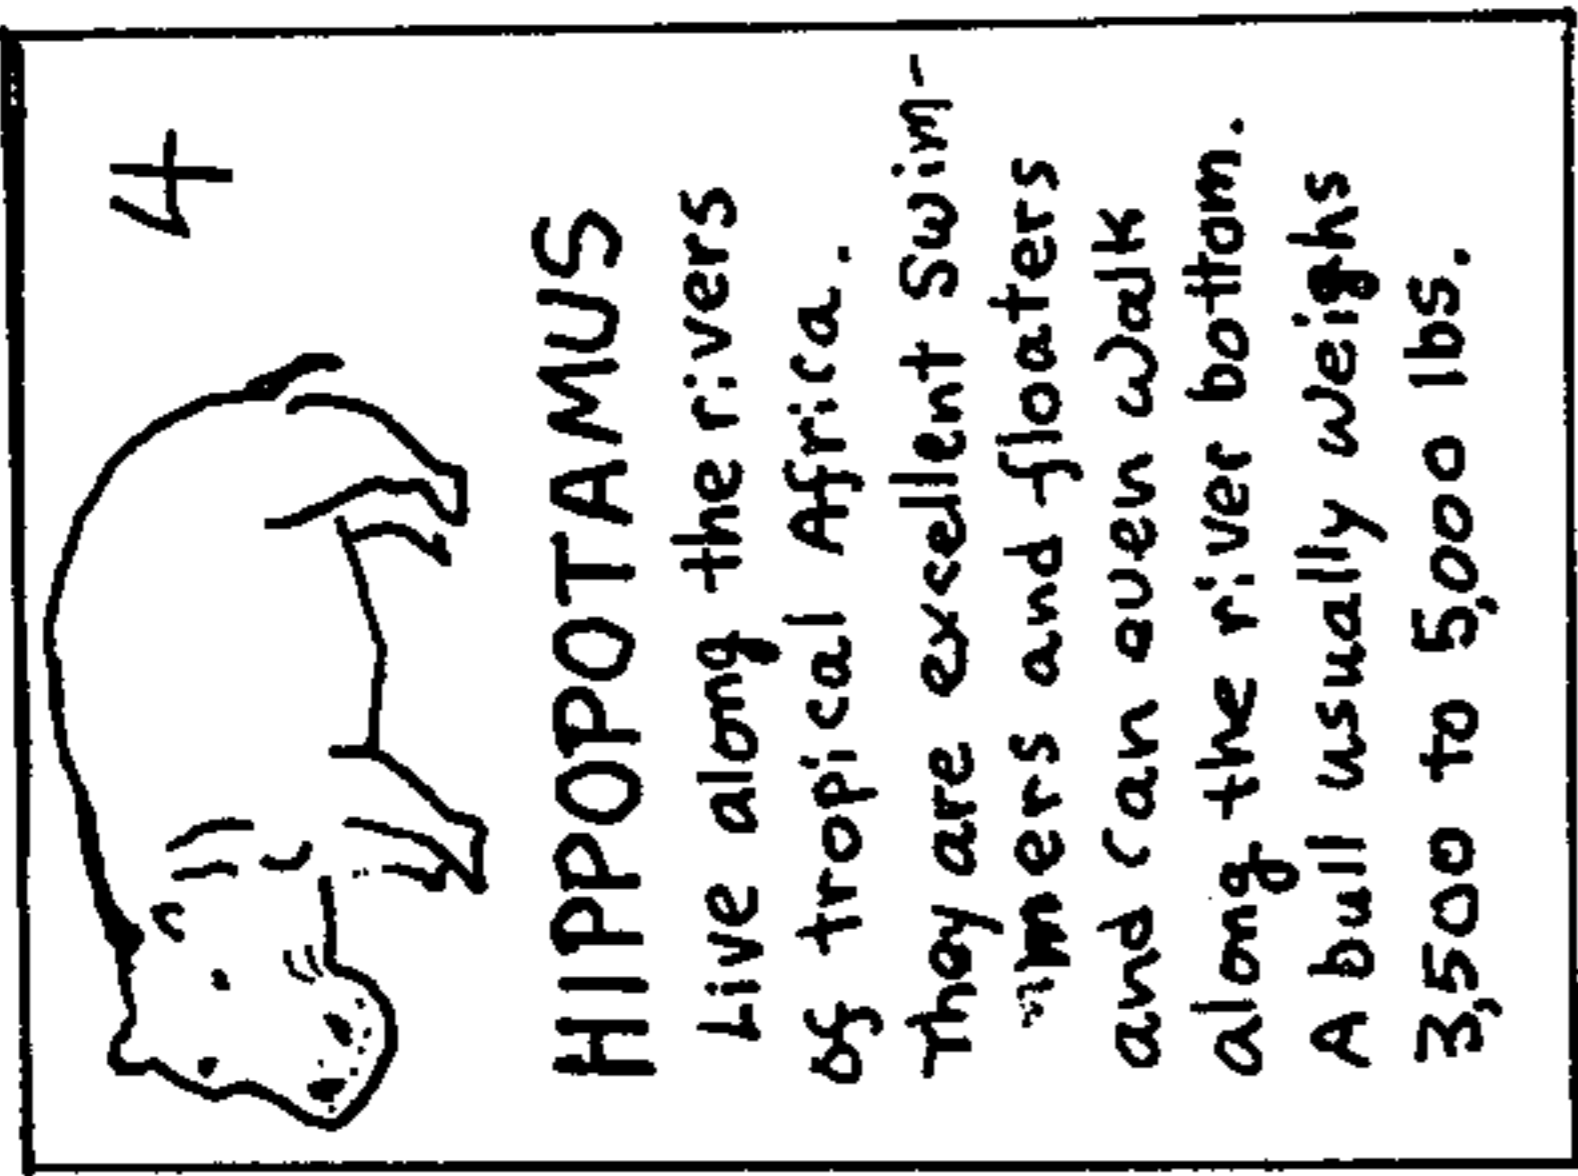 4
HIPPOPOTAMUS
Live along the rivers
of tropical Africa.
They are excellent Swim-
mers and floaters
and can even walk
along the river bottom.
A bull usually weighs
3,500 to 5,000 lbs.